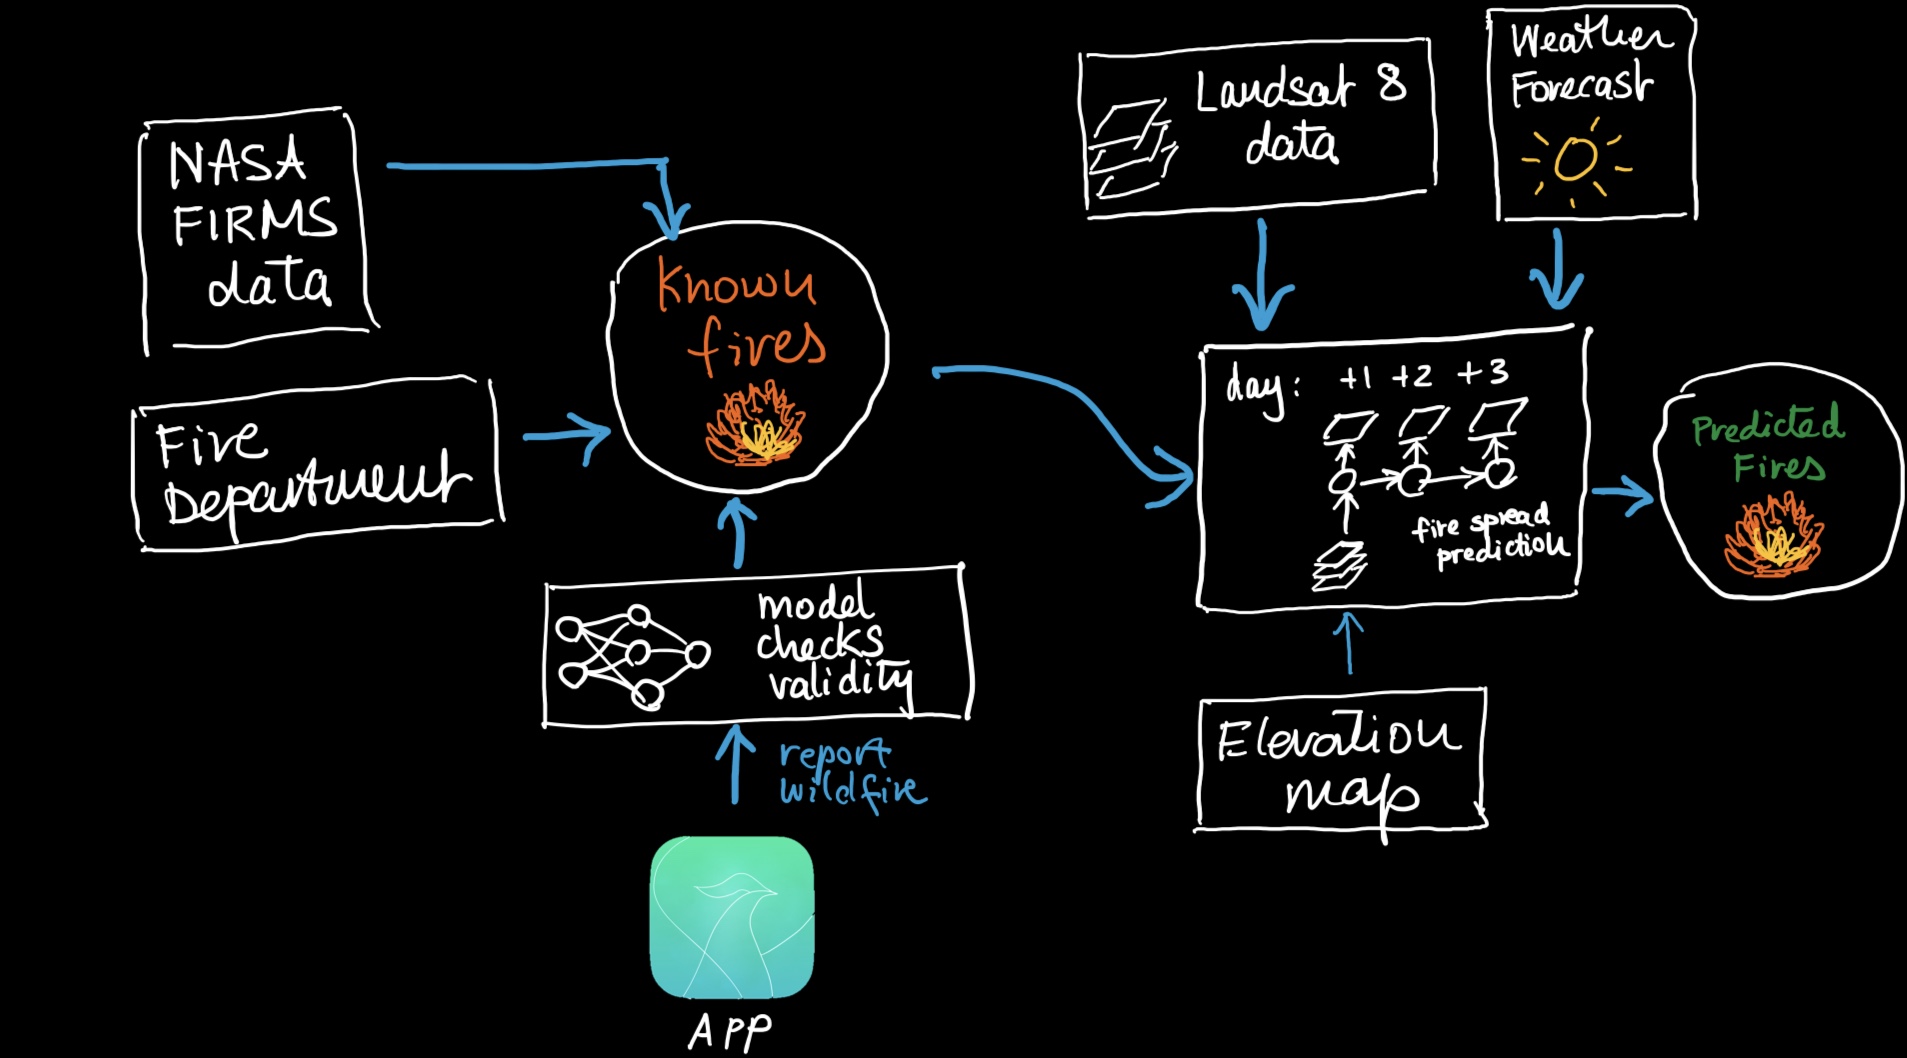 NASA
FIRMS
data
Fire
Department
Known
fires
model
checks
validity
report
wildfire
APP
Landsat 8
data
Weather
Forecast
day: +1 +2 +3
fire spread
prediction
Elevation
map
Predicted
Fires